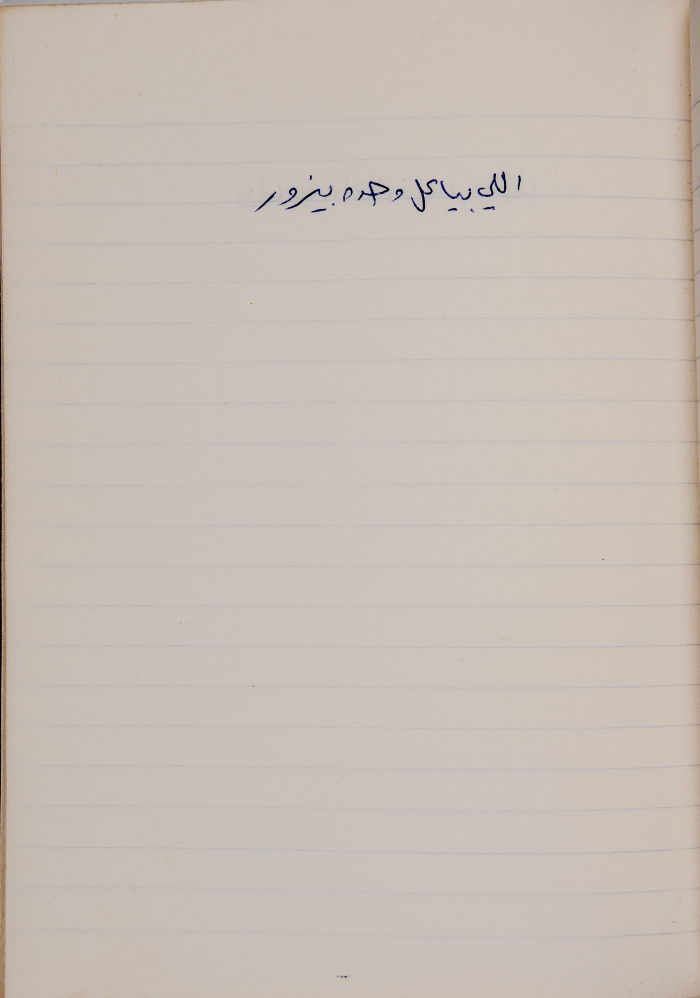 اللي بياكل وحده بيزور